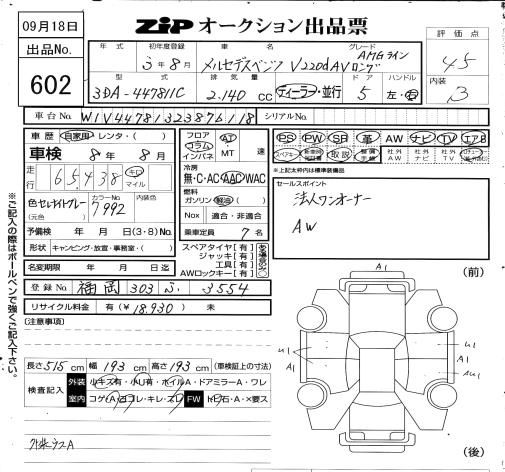 09月18日
ZIP オークション出品票
出品No.
602
年式 初年度登録 車名 グレード
3年8月 メルセデスベンツ V220d AV AMGライン ロング
評価点
4.5
内装
3
型式 排気量 ドア ハンドル
3DA-447811C 2.140 cc ディーラー・並行 5 左・右
車台No. W1V44781323876118 シリアルNo.
車歴 自家用・レンタ・( )
車検 8年8月
走行 65,438 キロ マイル
色 セレナイトグレー (元色) カラーNo. 7992 内装色
予備検 年 月 日(3・8)No.
形状 キャンピング・放宣・事務室・( )
名変期限 年 月 日迄
登録No. 福岡 303 ふ 3554
リサイクル料金 有(¥18,930) 未
フロア コラム インパネ AT・MT 速
冷房 無・C・AC AAC WAC
燃料 ガソリン 軽油 ( )
Nox 適合・非適合
乗車定員 7名
スペアタイヤ【有】
ジャッキ【有】
工具【有】
AWロックキー【有】
PS PW SR 革 AW ナビ TV エアB
スペアキー 取説 整備手帳 社外AW 社外ナビ 社外TV
*上記太枠内は標準装備品
セールスポイント
法人ワンオーナー
AW
※ご記入の際はボールペンで強くご記入下さい。
[注意事項]
長さ 515 cm 幅 193 cm 高さ 193 cm (車検証上の寸法)
検査記入 外装 小キズ有・小凹有・ホイルA・ドアミラーA・ワレ
室内 コゲA・ヨゴレ・キレ・スレ FW トビ石・A・×要ス
外装ウスA
(前)
A1
U1
A1
U1
A1
AU1
A1
(後)